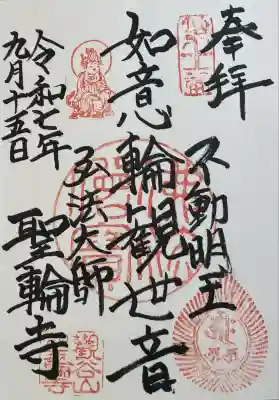 奉拝
不動明王
如意輪観世音
弘法大師
聖輪寺
令和七年
九月十五日
観谷山